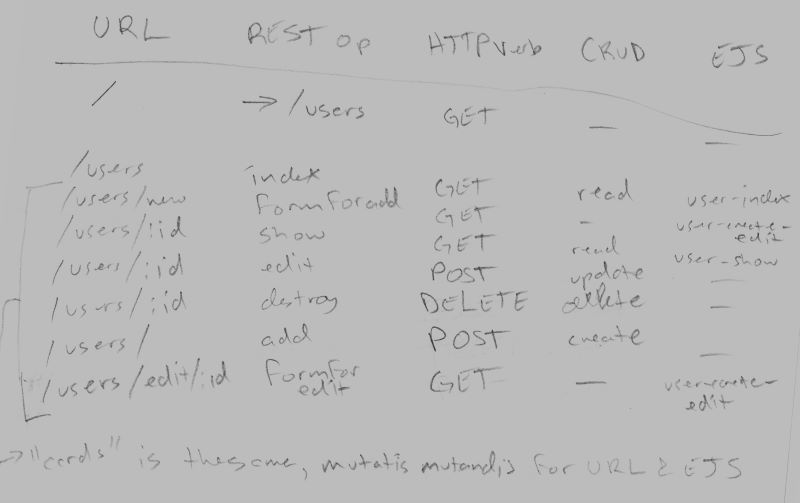 URL REST op HTTP verb CRUD EJS
/ → /users GET — —
/users index GET read user-index
/users/new form for add GET - user-create-edit
/users/:id show GET read user-show
/users/:id edit POST update —
/users/:id destroy DELETE delete —
/users/ add POST create —
/users/edit/:id form for edit GET — user-create-edit
→ "cards" is the same, mutatis mutandis for URL & EJS